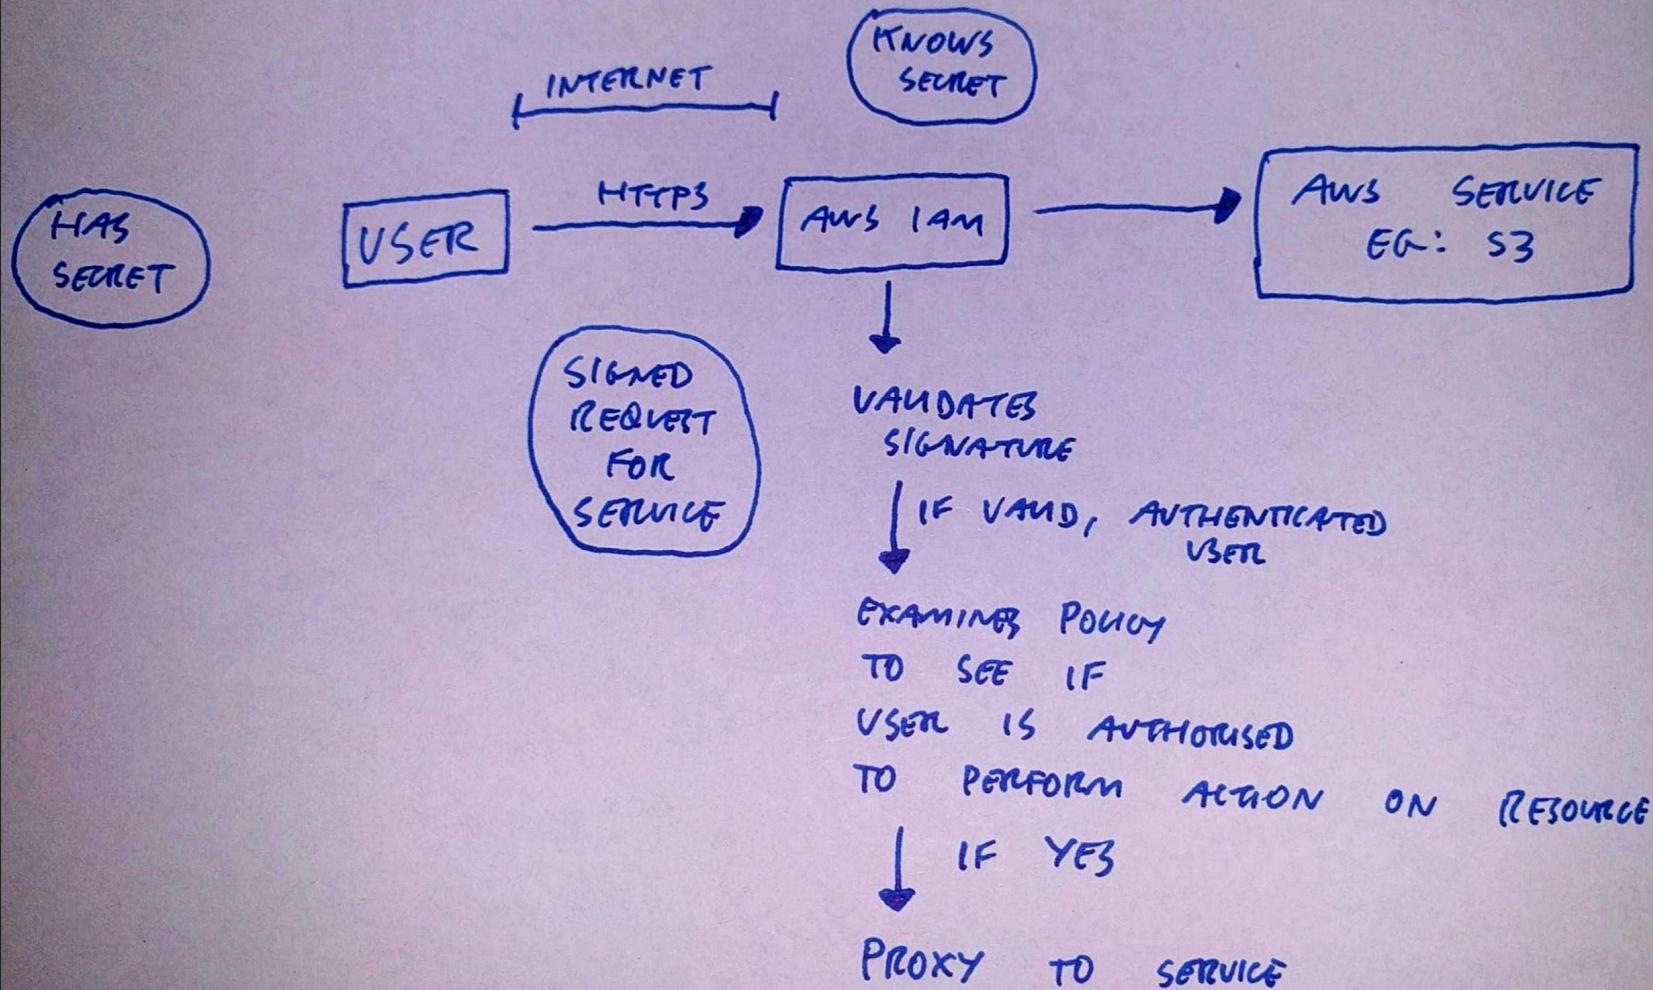 KNOWS
SECRET
INTERNET
HAS
SECRET
USER
HTTPS
AWS IAM
AWS SERVICE
EG: S3
SIGNED
REQUEST
FOR
SERVICE
VALIDATES
SIGNATURE
IF VALID, AUTHENTICATED
USER
EXAMINES POLICY
TO SEE IF
USER IS AUTHORISED
TO PERFORM ACTION ON RESOURCE
IF YES
PROXY TO SERVICE